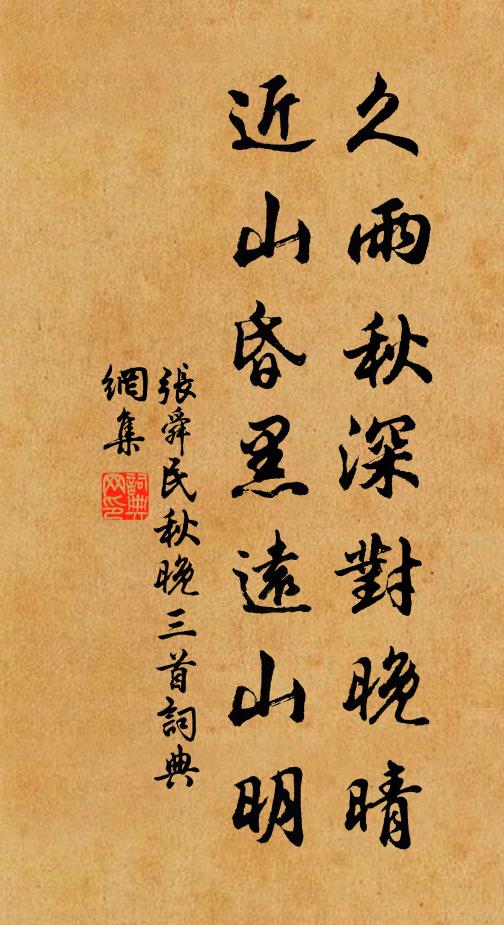 久雨秋深對晚晴
近山昏黑遠山明
張舜民秋晚三首詞典
網集
詞典
网印